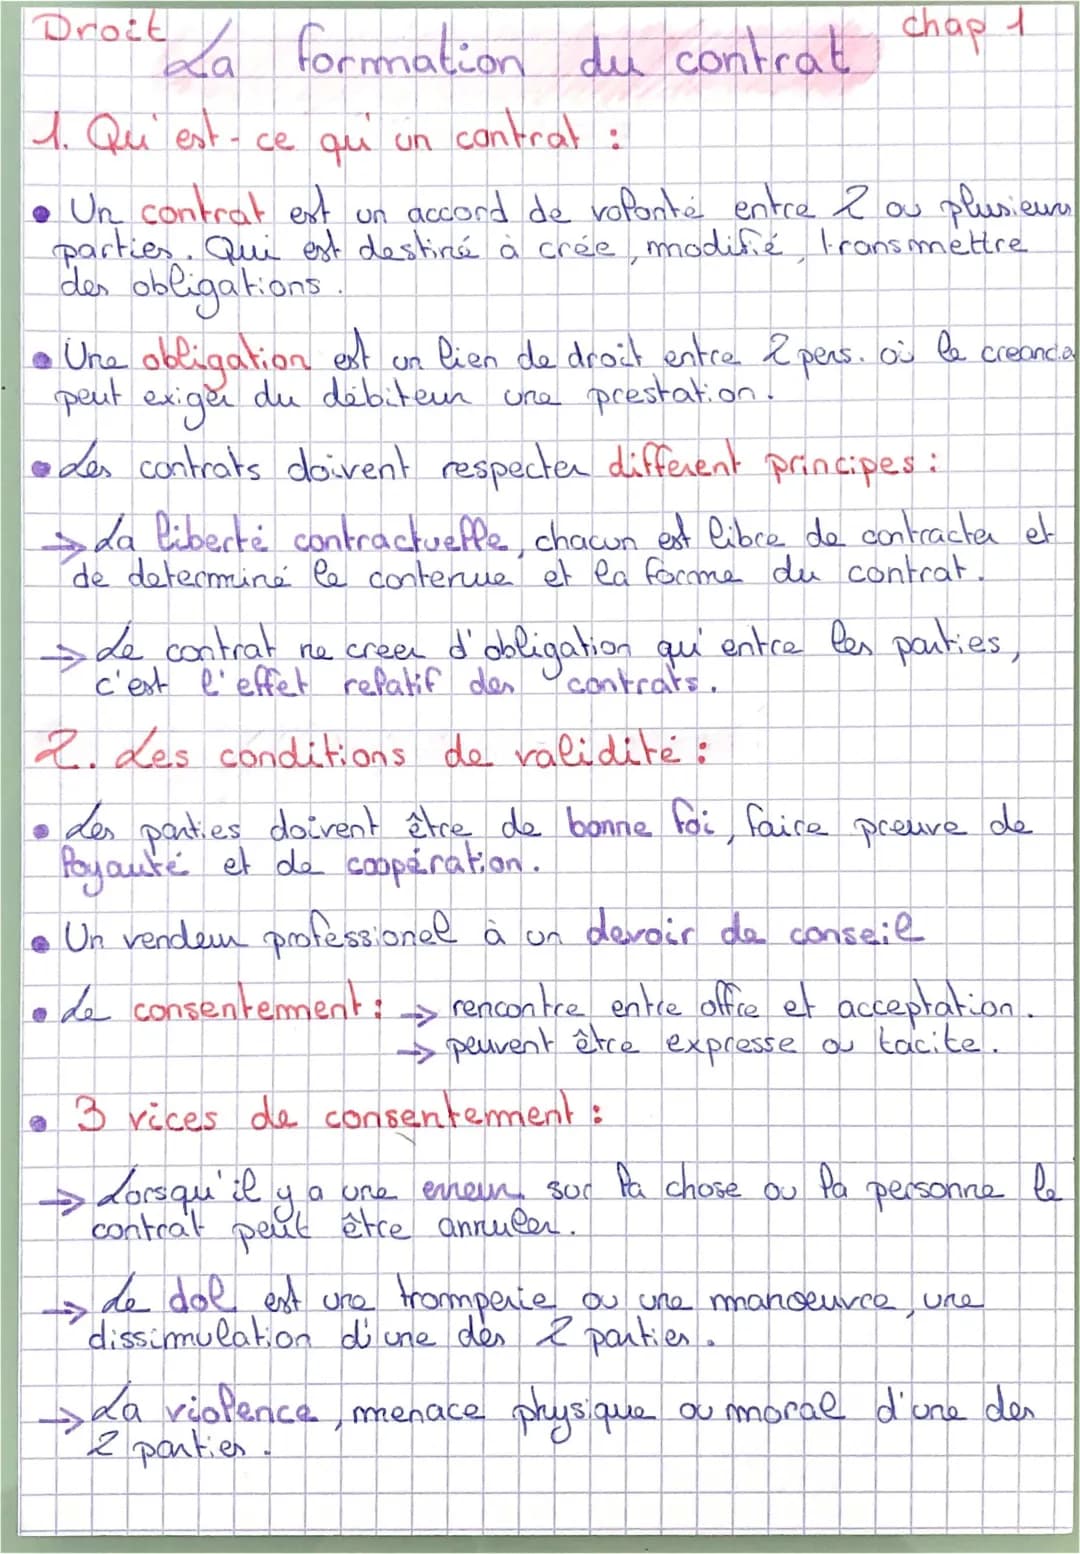 Droit
chap 1
La formation du contrat
1. Qu'est-ce qu'un contrat :
• Un contrat est un accord de volonté entre 2 ou plusieurs
parties. Qui est destiné à crée, modifié, transmettre
des obligations.
• Une obligation est un lien de droit entre 2 pers. où le
peut exiger du débiteur une prestation.
• Les contrats doivent respecter different principes :
→ La liberté contractuelle, chacun est libre de contracter et
de determiné le contenue et la forme du contrat.
→ Le contrat ne creer d'obligation qu'entre les parties,
c'est l'effet relatif des contrats.
2. Les conditions de validité :
• Les parties doivent être de bonne foi, faire preuve de
loyauté et de coopération.
• Un vendeur professionel à un devoir de conseil
• Le consentement : → rencontre entre offre et acceptation.
→ peuvent être expresse ou tacite.
• 3 vices de consentement :
→ Lorsqu'il y a une erreur sur la chose ou la personne le
contrat peut être annuler.
→ Le dol est une tromperie ou une manoeuvre, une
dissimulation d'une des 2 parties.
→ La violence, menace physique ou moral d'une des
2 parties.